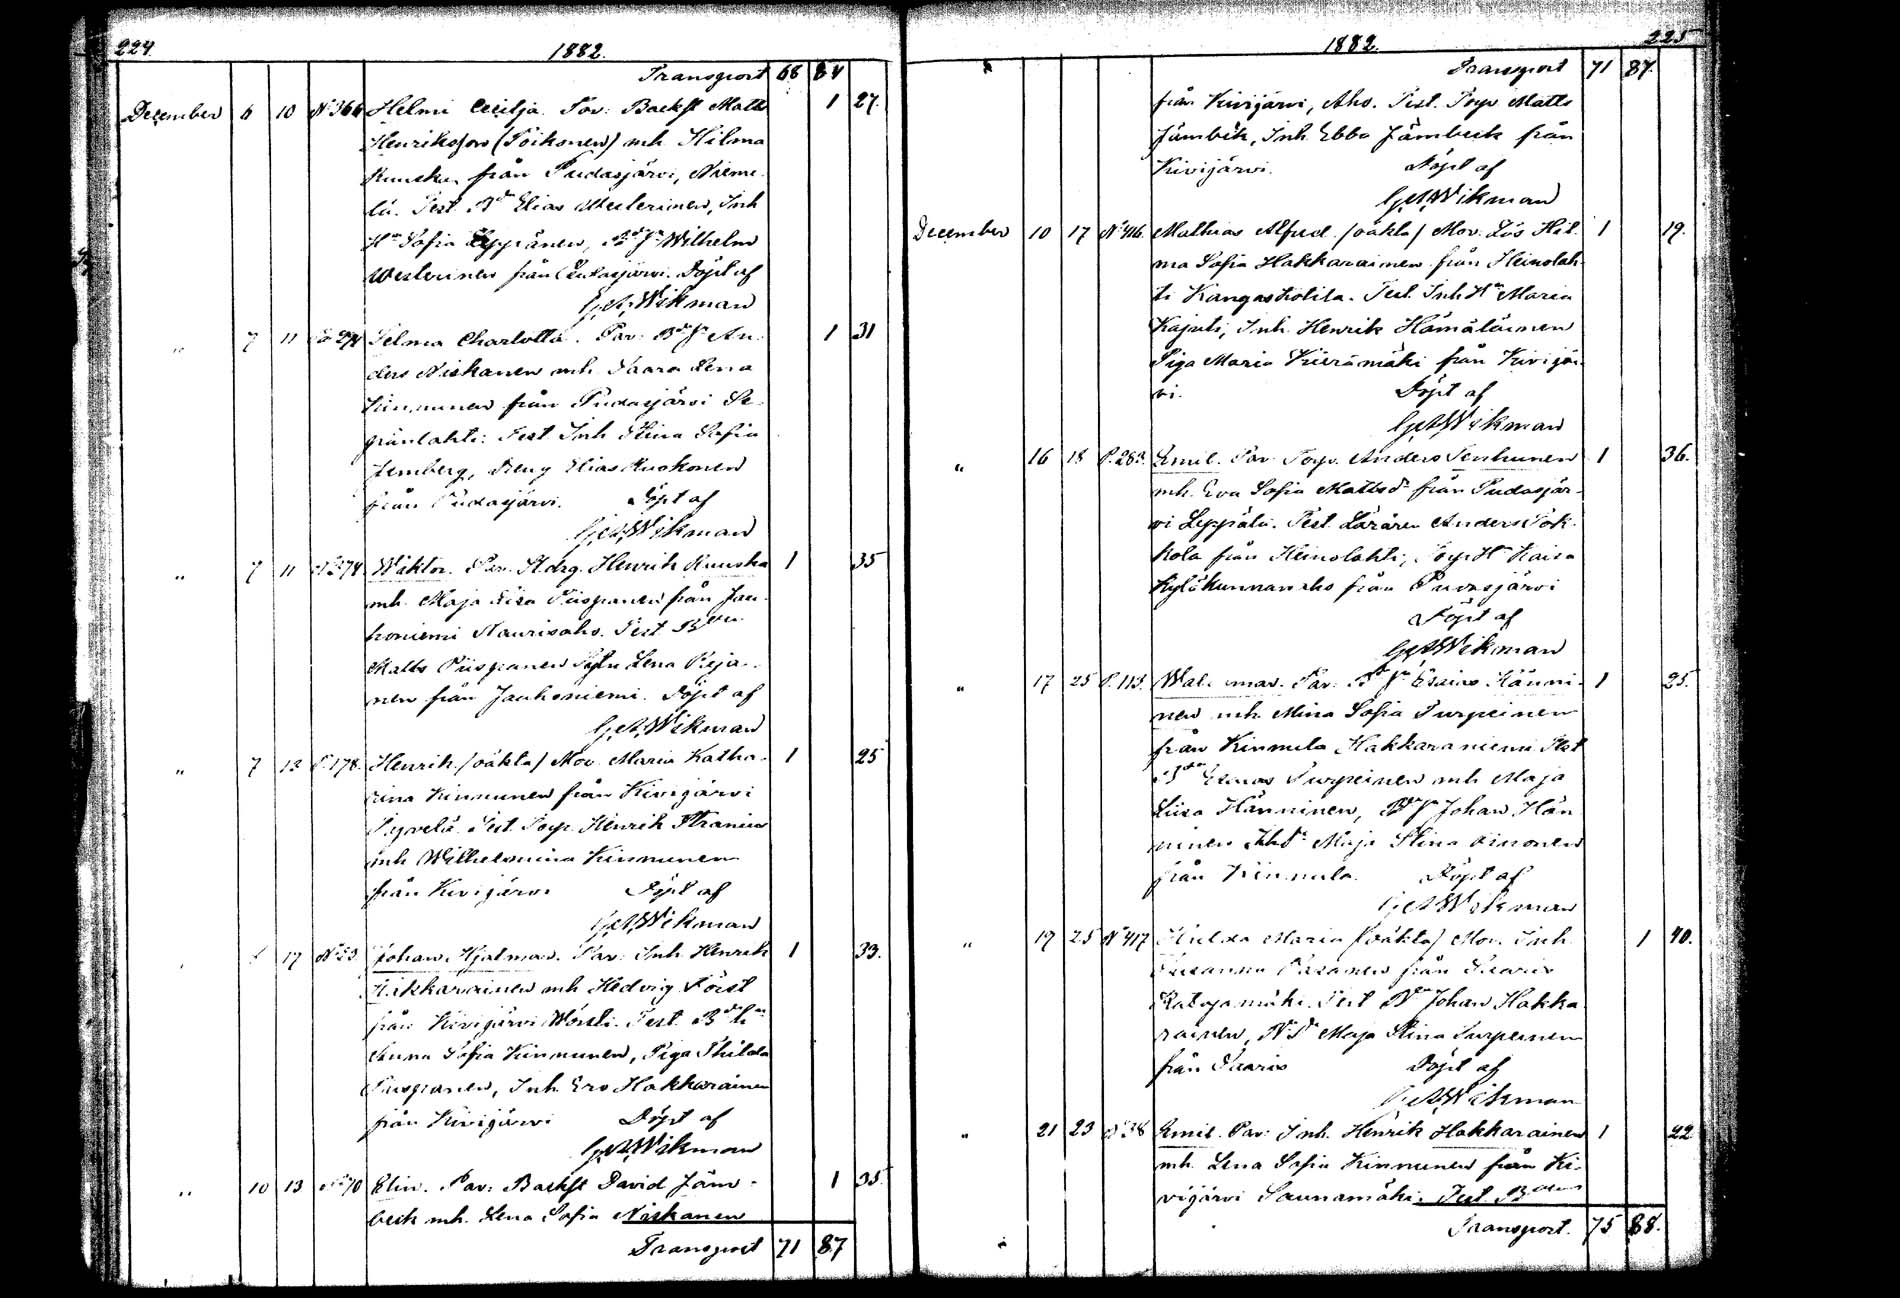 224.
1882.
Transport 68 84
December 6 10 No 366 Helmi Cecilja. Par: Backst Matts 1 27.
Henriksson (Poikonen) mh. Hilma
Ruuska från Pudasjärvi, Nieme-
lä. Test. Bdn Elias Westerinen, Inh
Hn Sofia Leppänen, BdSn Wilhelm
Westerinen från Pudasjärvi. Döpt af
G.A.Wikman
" 7 11 Selma Charlotta. Par: BdSn An- 1 31
ders Niskanen mh. Saara Lena
Kinnunen från Pudasjärvi Se-
pänlahti. Test Inh Stina Sofia
Jernberg, Dreng Elias Ruokonen
från Pudasjärvi. Döpt af
G.A.Wikman
" 7 11 Wiktor. Par. Henrik Ruuska 1 35
mh. Maja Lisa Piispanen från Jau-
honiemi Naurisaho. Test. Bdn
Matts Piispanen Lena
nen från Jauhoniemi. Döpt af
G.A.Wikman
" 7 13 P.178. Henrik /oäkta/ Mov. Maria Katha- 1 25
rina Kinnunen från Kivijärvi
Test. Torp. Henrik
mh Wilhelmina Kinnunen
från Kivijärvi Döpt af
G.A.Wikman
17 No 53 Johan Hjalmar. Par. Inh. Henrik 1 33.
Hakkarainen mh Hedvig
från Kivijärvi Test.
Sanna Sofia Kinnunen, Piga Thilda
Piispanen, Inh. Ero Hakkarainen
från Kivijärvi Döpt af
G.A.Wikman
" 10 13 No 70 Elin. Par: Backst David Jäm- 1 35.
beck mh. Lena Sofia Niskanen
Transport 71 87
1882. 225
Transport 71 87.
från Kivijärvi, Aho. Test. Torp Matts
Jämbäck, Inh. Ebba Jämbeck från
Kivijärvi. Döpt af
G.A.Wikman
December 10 17 No 416. Mathias Alfred. /oäkta/ Mov. Lös Hil- 1 19.
ma Sofia Hakkarainen från Heinolah-
ti Kangaskolila. Test. Inh Hn Maria
Kajuti, Inh. Henrik Hämäläinen
Piga Maria från Kivijär-
vi. Döpt af
G.A.Wikman
" 16 18 P.283. Emil. Par Torp. Anders Tenhunen 1 36.
mh. Eva Sofia Mattsdr från Pudasjär-
vi Leppälä. Test. Läraren Anders Pok-
kola från Heinolahti, Torp Hn Kaisa
Kylökunnanaho från Pudasjärvi
Döpt af
G.A.Wikman
" 17 25 P.113. Walmar. Par: BdSn Esaias Hänni- 1 25.
nen mh Mina Sofia Turpeinen
från Kinnula Hakkaraniemi Test
Bdn Esaias Turpeinen mh Maja
Liisa Hänninen, BdSn Johan Hän-
ninen Maja Stina
från Kinnula. Döpt af
G.A.Wikman
" 19 25 No 417 Hulda Maria /oäkta/ Mov. Inh 1 40.
Susanna Pasanen från Saaris
Katajamäki. Test Bdn Johan Hakka-
rainen, Maja Stina Turpeinen
från Saaris Döpt af
G.A.Wikman
" 21 23 No 38 Emil. Par: Inh. Henrik Hakkarainen 1 22
mh. Lena Sofia Kinnunen från Ki-
vijärvi Saunamäki. Test.
Transport. 75 88.